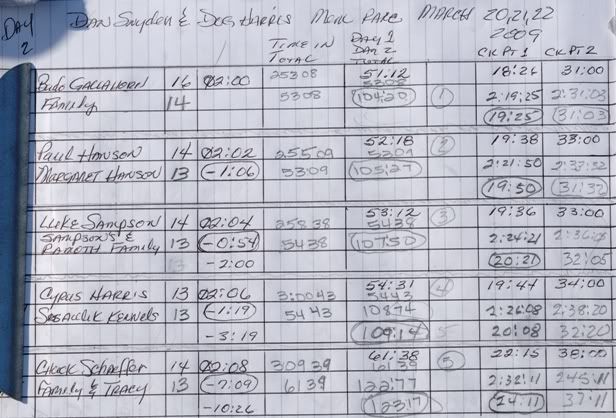 DAY 2 DAN Snyden & DOUG HARRIS MEM. RACE MARCH 20,21,22 2009
TIME IN TOTAL DAY 1 DAY 2 TOTAL CKPT1 CKPT2
Budo GALLAHORN 16 02:00 25308 51.12 18:26 31:00
Family 14 5308 5308 10420 1 2:19:25 2:31:03
19:25 31:03
PAUL HANSON 14 02:02 25509 52:18 2 19:38 33:00
MARGARET HANSON 13 -1:06 5309 5309 105:27 2:21:50 2:33:32
19:50 31:32
LUKE SAMPSON 14 02:04 25838 53:12 3 19:36 33:00
SAMPSON'S & RAMOTH Family 13 -0:54 5438 5438 10750 2:24:21
13 -2:00 20:21 32:05
CYRUS HARRIS 13 02:06 3:0043 54:31 4 19:44 34:00
SISAULIK KENNELS 13 -1:19 5443 5443 10874 2:26:08 2:38:20
-3:19 109:14 5 20:08 32:20
CHUCK Schaeffer 14 02:08 30939 61:38 5 22:15 38:00
FAMILY & TRACY 13 -7:09 6139 6139 122:77 2:32:11 245:11
-10:26 12317 24:11 37:11